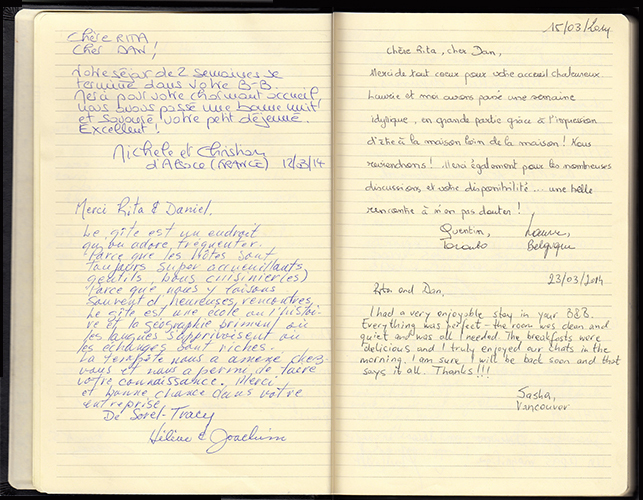 Chère RITA
Cher DAN!
Notre séjour de 2 semaines se
termine dans votre B-B.
Merci pour votre charmant accueil
nous avons passé une bonne nuit
et savouré votre petit déjeuné.
Excellent!
Michele et Christian
d'Alsace (FRANCE) 12/03/14
Merci Rita & Daniel.
Le gîte est un endroit
qu'on adore fréquenter.
Parce que les hôtes sont
toujours super accueillants,
gentils bons cuisinier(es)
Parce que nous y faisons
souvent d'heureuses rencontres,
Le gîte est une école où l'histoi-
re et la géographie priment où
les langues s'apprivoisent où
les échanges sont riches.
La tempête nous a amené chez
vous et nous a permis de faire
votre connaissance. Merci
et bonne chance dans votre
entreprise
De Sorel-Tracy
Hélène & Joachim
15/03/2014
Chère Rita, cher Dan,
Merci de tout coeur pour votre accueil chaleureux.
Laurie et moi avons passé une semaine
idyllique, en grande partie grâce à l'impression
d'être à la maison loin de la maison! Nous
reviendrons! Merci également pour les nombreuses
discussions, et votre disponibilité... une belle
rencontre à n'en pas douter!
Quentin, Laurie,
Toronto Belgique
23/03/2014
Rita and Dan,
I had a very enjoyable stay in your B&B.
Everything was perfect - the room was clean and
quiet and was all I needed. The breakfasts were
delicious and I truly enjoyed our chats in the
morning. I am sure I will be back soon and that
says it all. Thanks!!!
Sasha,
Vancouver